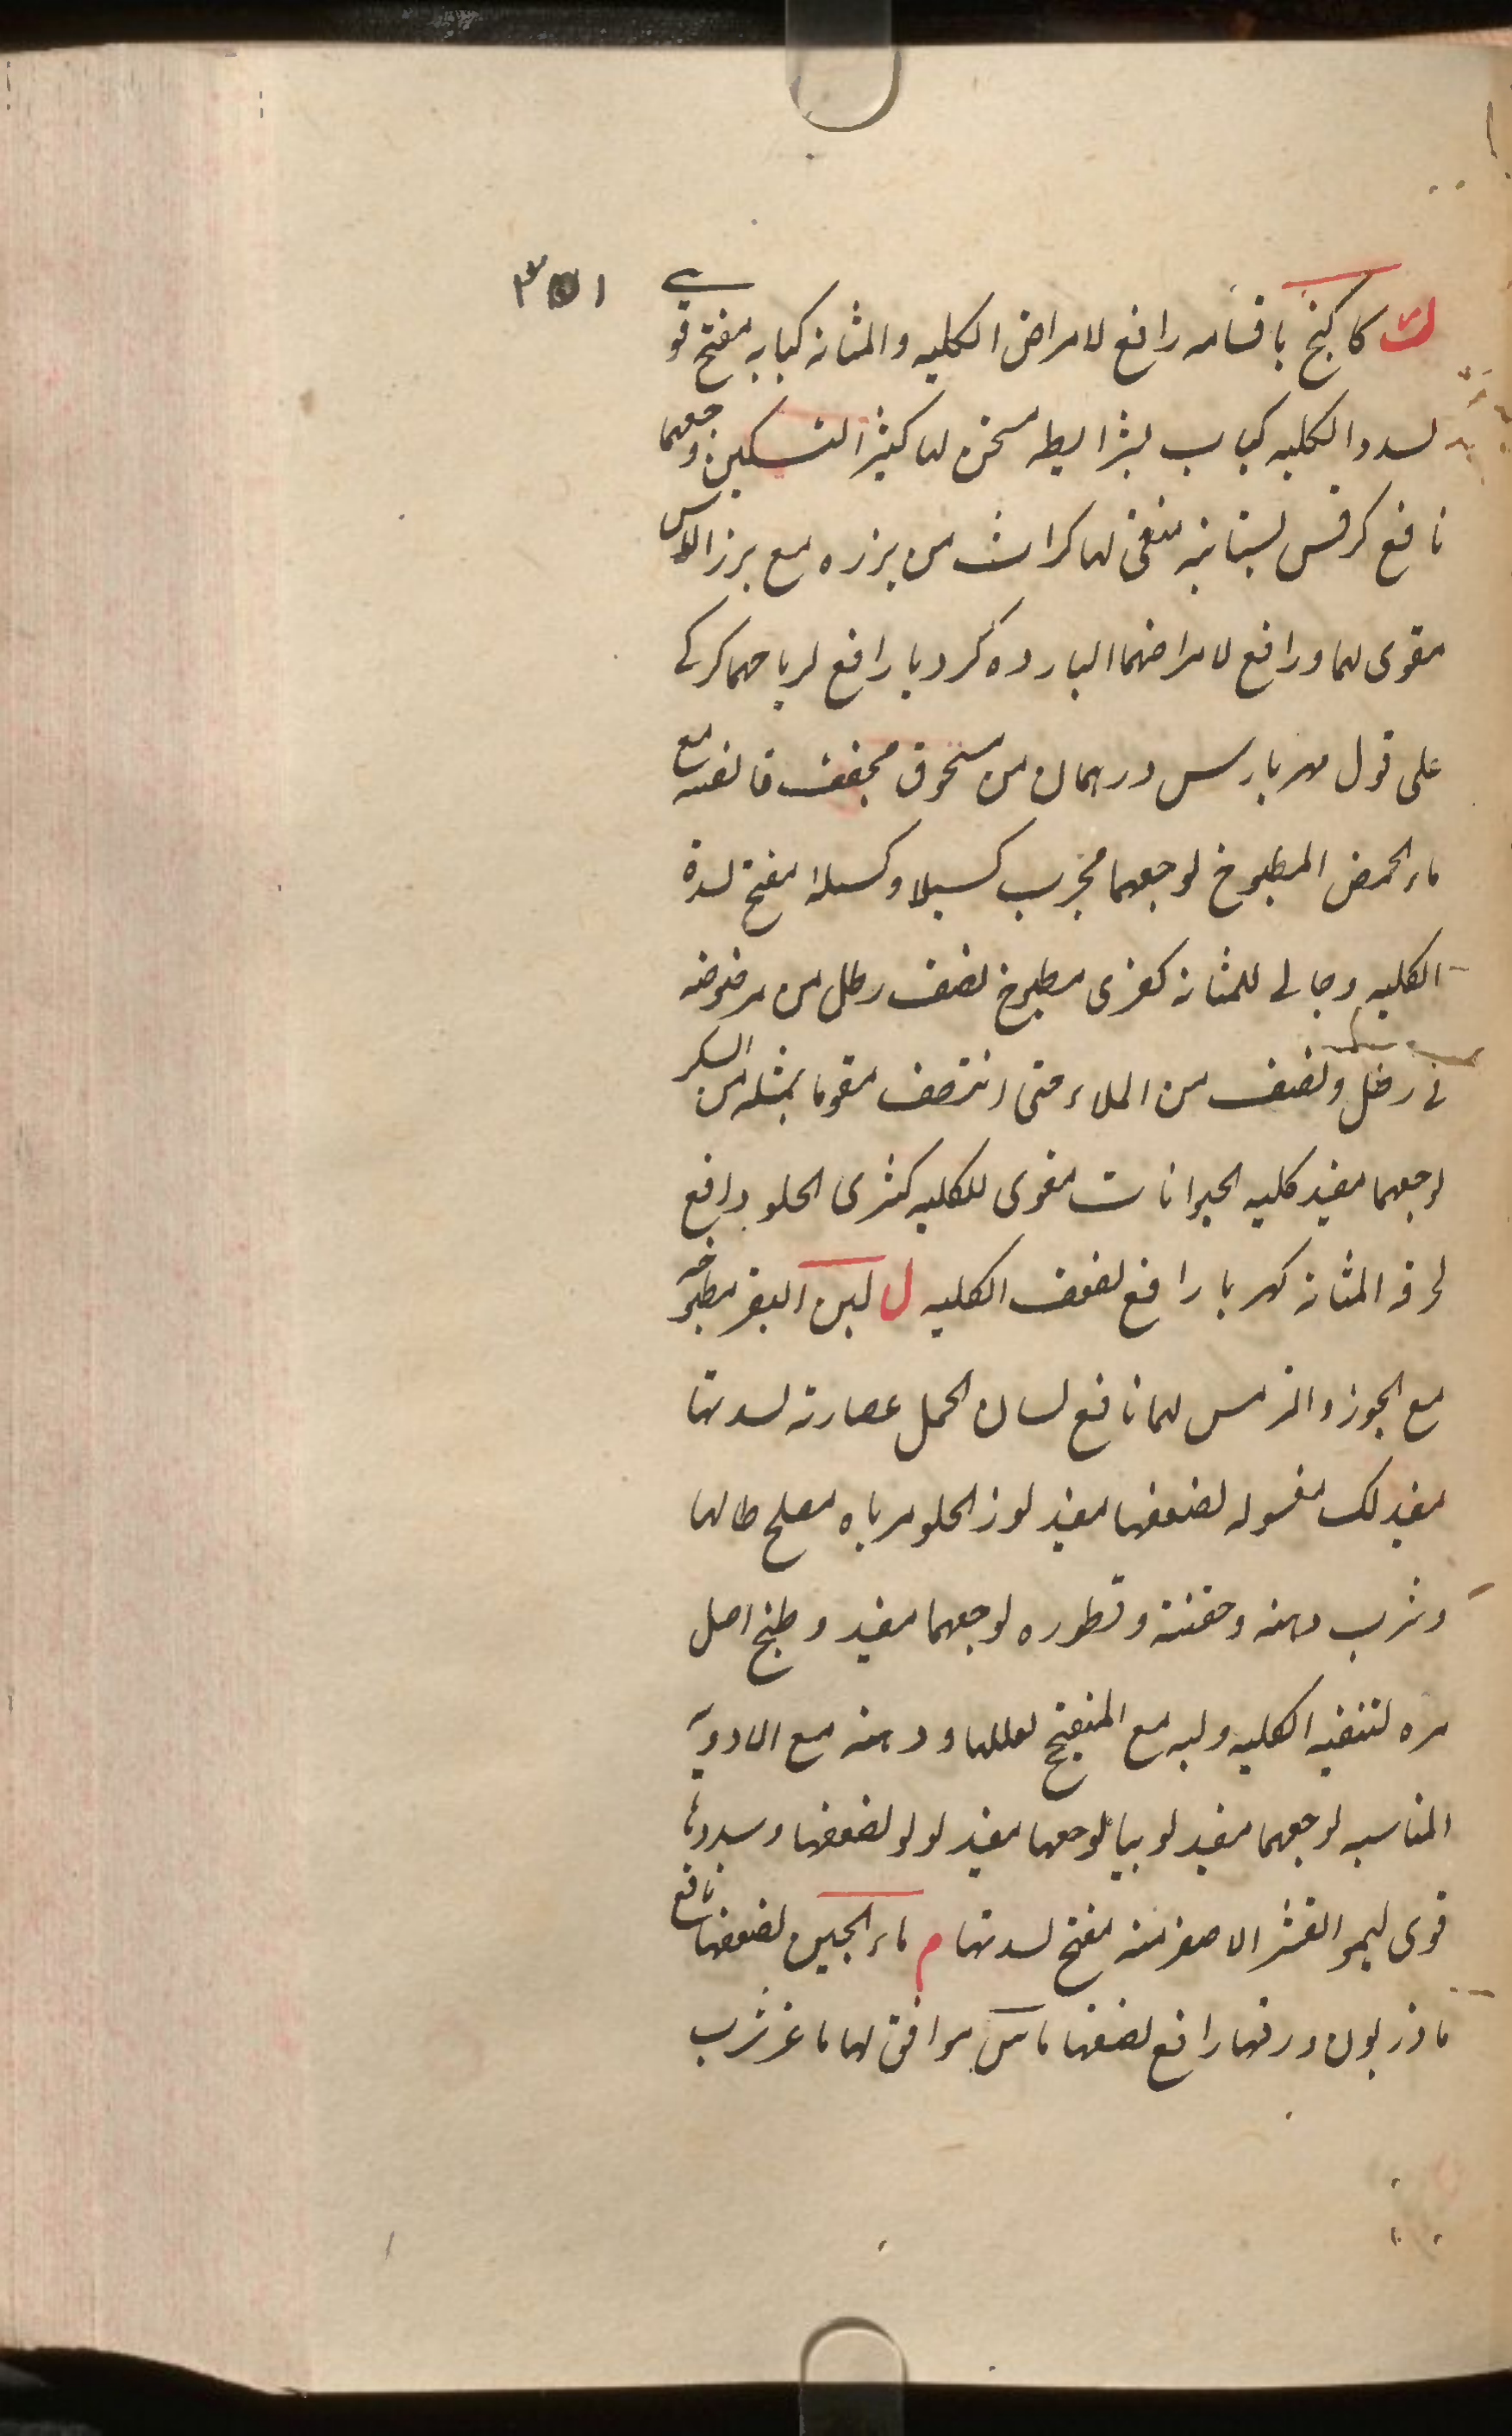 ٣٥١
ك كاكنج باقسامه رافع لامراض الكليه والمثانه كبابه مفتح قوي
لسدد الكليه كباب بشرايطه مسخن لها كثيرا لتسكين وجعهما
نافع كرفس بستانيه منقى لهما كراث من بزره مع بزر الاس
مقوى لهما ورافع لامراضهما البارده كرويا رافع لرياحهما كركى
على قول مهربارس درهمان من مسحوق مجفف قانصه مع
ماء الحمص المطبوخ لوجعهما مجرب كسيلا وكسيله مفتح لسدة
الكليه وجالى للمثانه كفرى مطبوخ نصف رطل من مرضوضه
فى رطل ونصف من الماء حتى انتصف مقوما بمثله من السكر
لوجعهما مفيد كليه الحيوانات مقوى للكليه كمثرى الحلو دافع
لحرقه المثانه كهربا رافع لضعف الكليه ل لبن البقر مطبوخه
مع الجوز والترمس لهما نافع لسان الحمل عصارته لسدتها
مفيد لك مغسوله لضعفها مفيد لوز الحلو مرباه مصلح حالها
وشرب دهنه وحقنته وقطوره لوجعهما مفيد وطبخ اصل
مره لتنقيه الكليه ولبه مع الميفختج لعللها ودهنه مع الادويه
المناسبه لوجعهما مفيد لوبيا لوجعها مفيد لولو لضعفها وسددها
قوى ليمو القشر الاصفر منه مفتح لسدتها م ماء الجبن لضعفها نافع
ماذريون ورقها رافع لضعفها ماس موافق لها ماغز شرب